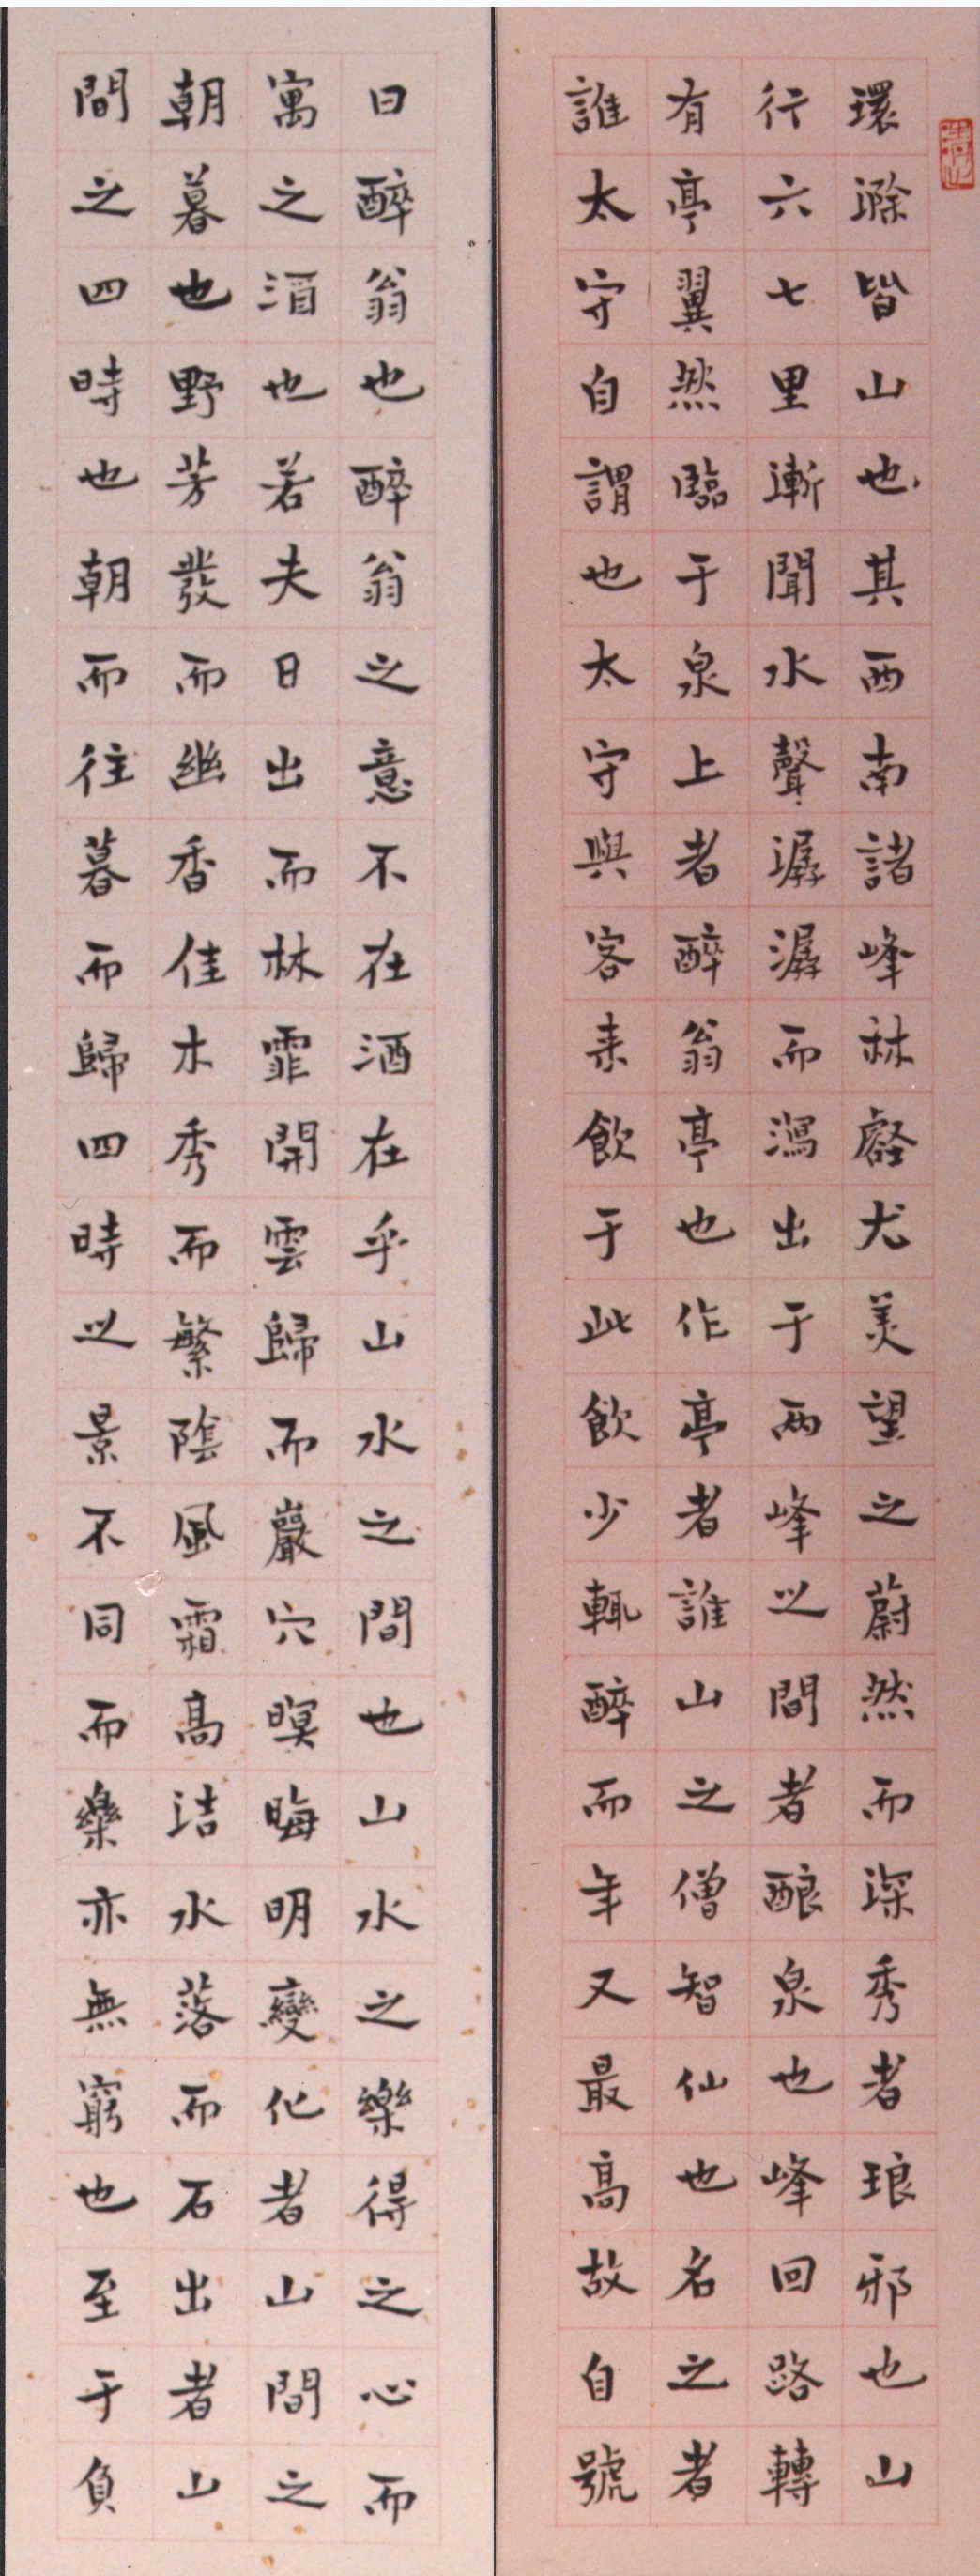 環滁皆山也其西南諸峰林壑尤美望之蔚然而深秀者琅邪也山
行六七里漸聞水聲潺潺而瀉出于兩峰之間者釀泉也峰回路轉
有亭翼然臨于泉上者醉翁亭也作亭者誰山之僧智仙也名之者
誰太守自謂也太守與客来飲于此飲少輒醉而年又最高故自號
曰醉翁也醉翁之意不在酒在乎山水之間也山水之樂得之心而
寓之酒也若夫日出而林霏開雲歸而巖穴暝晦明變化者山間之
朝暮也野芳發而幽香佳木秀而繁陰風霜高洁水落而石出者山
間之四時也朝而往暮而歸四時之景不同而樂亦無窮也至于負